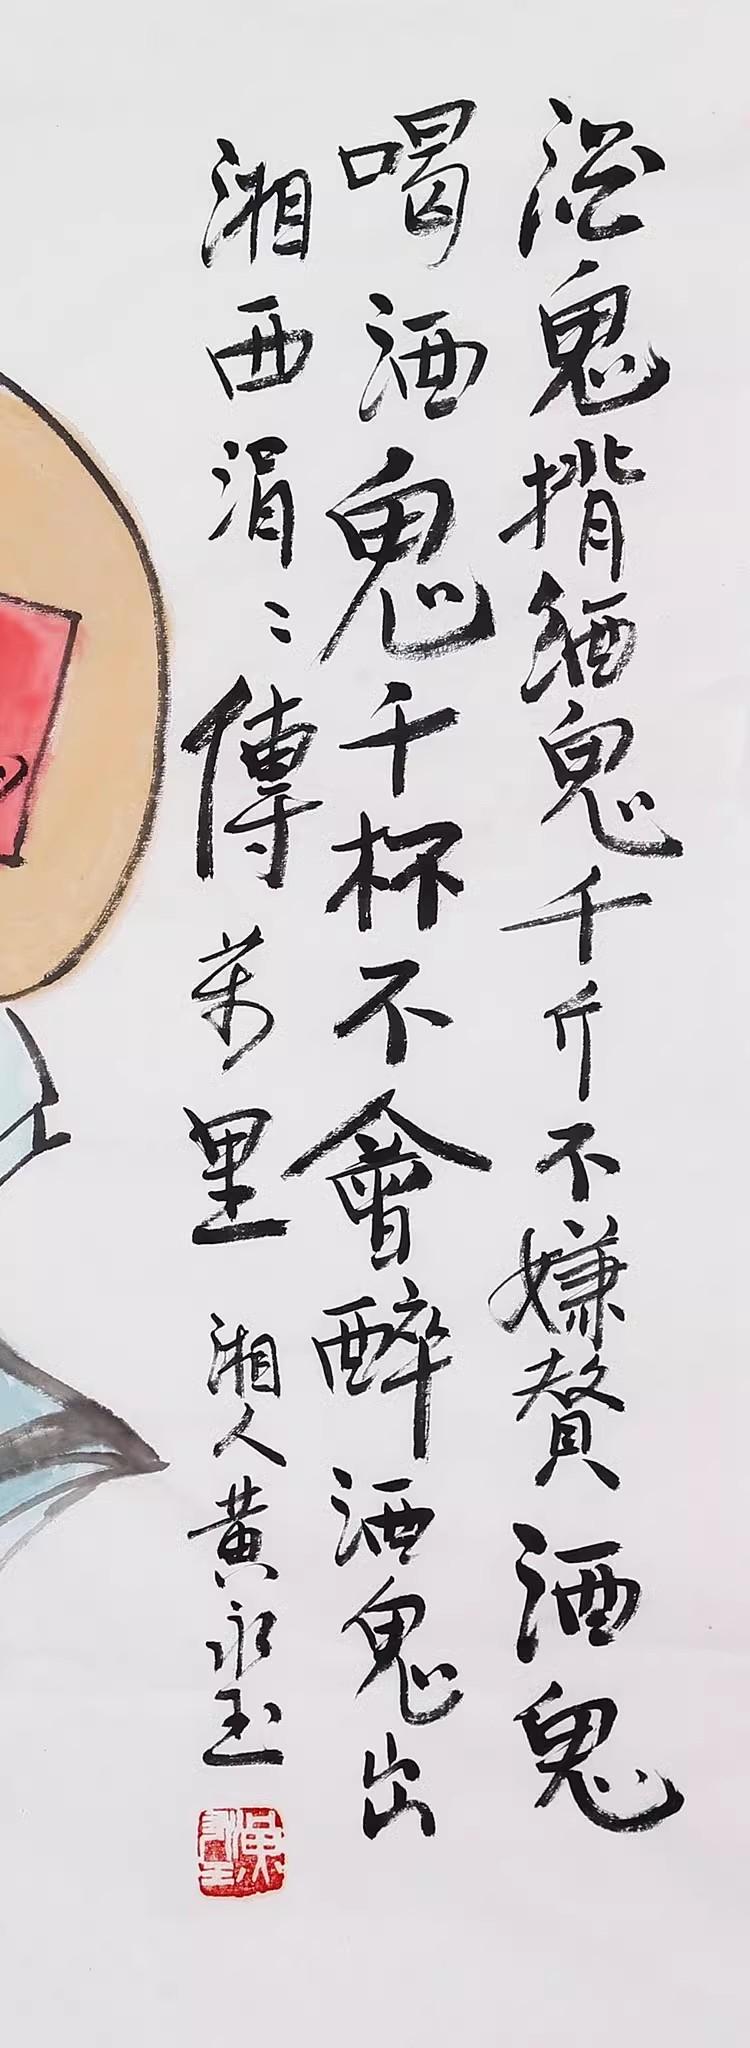 酒鬼揹酒鬼千斤不嫌贅酒鬼
喝酒鬼千杯不會醉酒鬼出
湘西涓〻傳萬里
湘人黄永玉